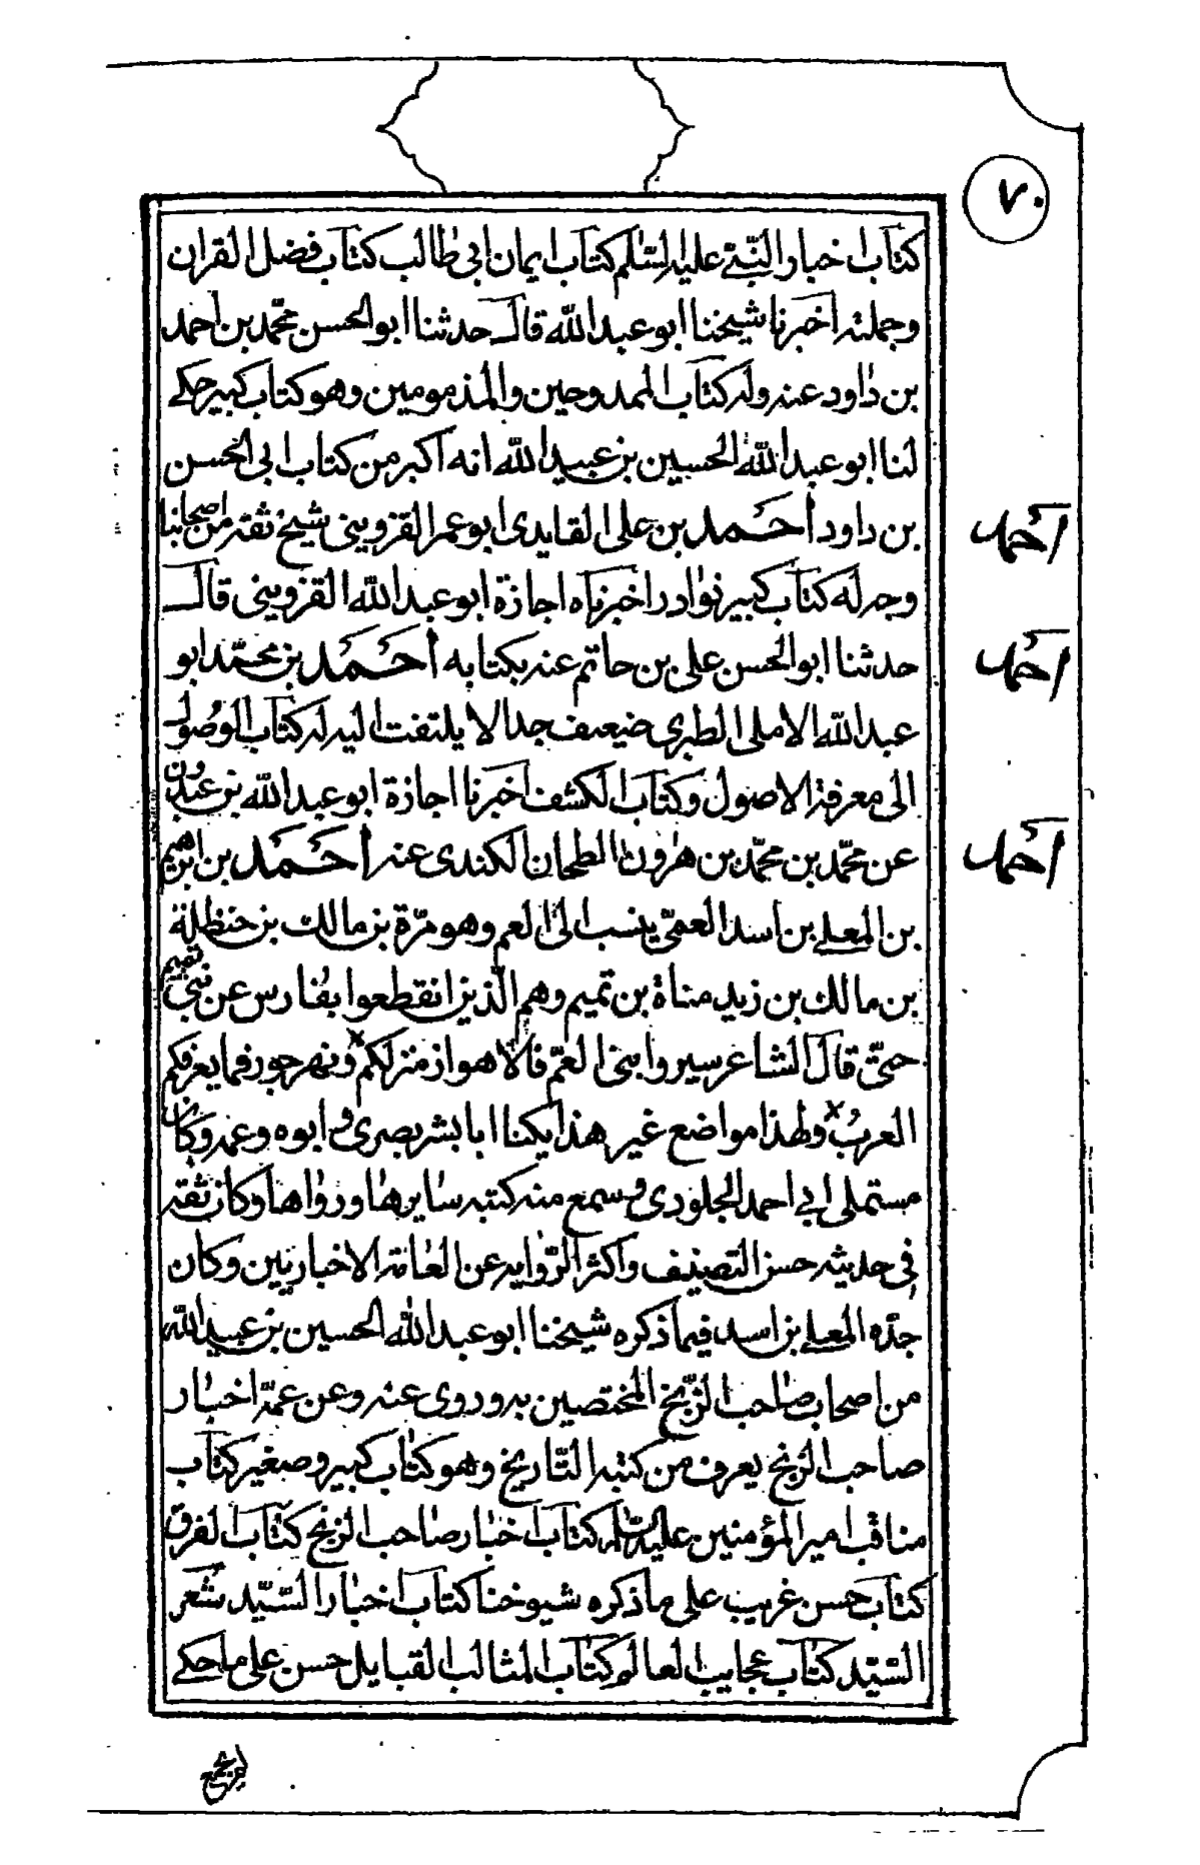 ٧٠
كتاب اخبار النبي عليه السلم كتاب ايمان ابي طالب كتاب فضل القران
وجملته اخبرنا شيخنا ابو عبد الله قال حدثنا ابو الحسن محمد بن احمد
بن داود عنه وله كتاب الممدوحين والمذمومين وهو كتاب كبير حكى
لنا ابو عبد الله الحسين بن عبيد الله انه اكبر من كتاب ابي الحسن
احمد
بن داود احمد بن علي القايدي ابو عمر القزويني شيخ ثقة من اصحابنا
وجه له كتاب كبير نوادر اخبرناه اجازة ابو عبد الله القزويني قال
احمد
حدثنا ابو الحسن علي بن حاتم عنه بكتابه احمد بن محمد ابو
عبد الله الاملي الطبري ضعيف جدا لا يلتفت اليه له كتاب الوصول
الى معرفة الاصول وكتاب الكشف اخبرنا اجازة ابو عبد الله بن عبدون
احمد
عن محمد بن محمد بن هرون الطحان الكندي عنه احمد بن ابرهيم
بن المعلى بن اسد العمي ينسب الى العم وهو مرة بن مالك بن حنظلة
بن مالك بن زيد مناة بن تميم وهم الذين انقطعوا بفارس عن بني تميم
حتى قال الشاعر سيروا بني العم فالاهواز منزلكم ونهر جور فما يعرفكم
العرب ولهذا مواضع غير هذا يكنا ابا بشر بصري وابوه وعمه وكان
مستملي ابي احمد الجلودي وسمع منه كتبه سايرها ورواها وكان ثقة
في حديثه حسن التصنيف واكثر الرواية عن العامة الاخباريين وكان
جده المعلى بن اسد فيما ذكره شيخنا ابو عبد الله الحسين بن عبيد الله
من اصحاب صاحب الزنج المختصين به وروى عنه وعن عمه اخبار
صاحب الزنج يعرف من كتبه التاريخ وهو كتاب كبير وصغير كتاب
مناقب امير المؤمنين عليه السلم كتاب اخبار صاحب الزنج كتاب الفرق
كتاب حسن غريب على ما ذكره شيوخنا كتاب اخبار السيد شعر
السيد كتاب عجايب العالم كتاب المثالب القبايل حسن على ما حكى